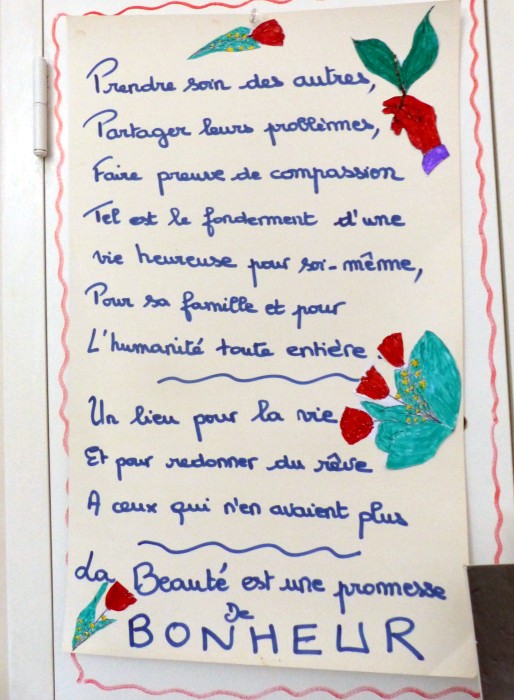 Prendre soin des autres,
Partager leurs problèmes,
Faire preuve de compassion
Tel est le fonderment d'une
vie heureuse pour soi-même,
Pour sa famille et pour
L'humanité toute entière.
Un lieu pour la vie
Et pour redonner du rêve
A ceux qui n'en avaient plus
La Beauté est une promesse
De
BONHEUR